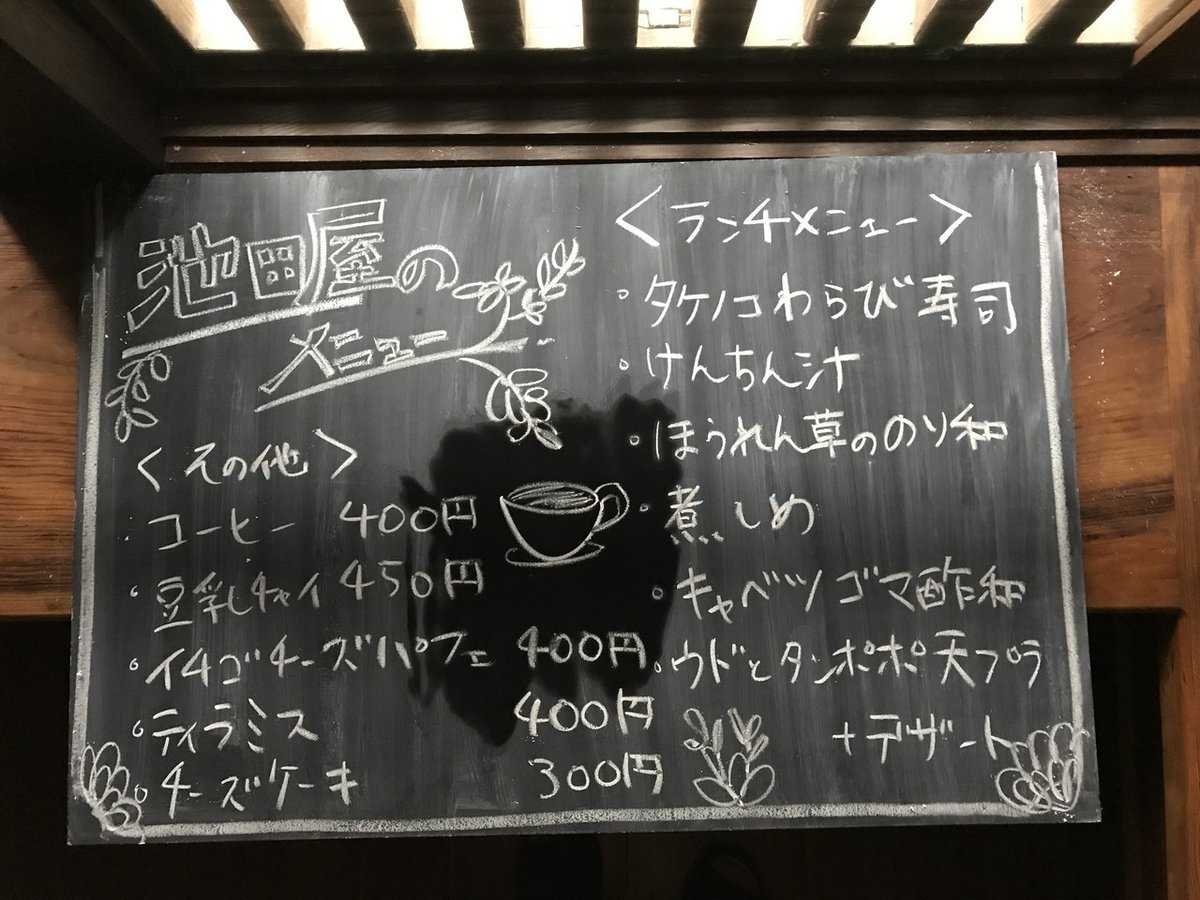 池田屋の
メニュー
<その他>
・コーヒー 400円
・豆乳チャイ 450円
・イチゴチーズパフェ 400円
・ティラミス 400円
・チーズケーキ 300円
<ランチメニュー>
・タケノコわらび寿司
・けんちん汁
・ほうれん草ののり和
・煮しめ
・キャベツゴマ酢和
・ウドとタンポポ天プラ
+デザート